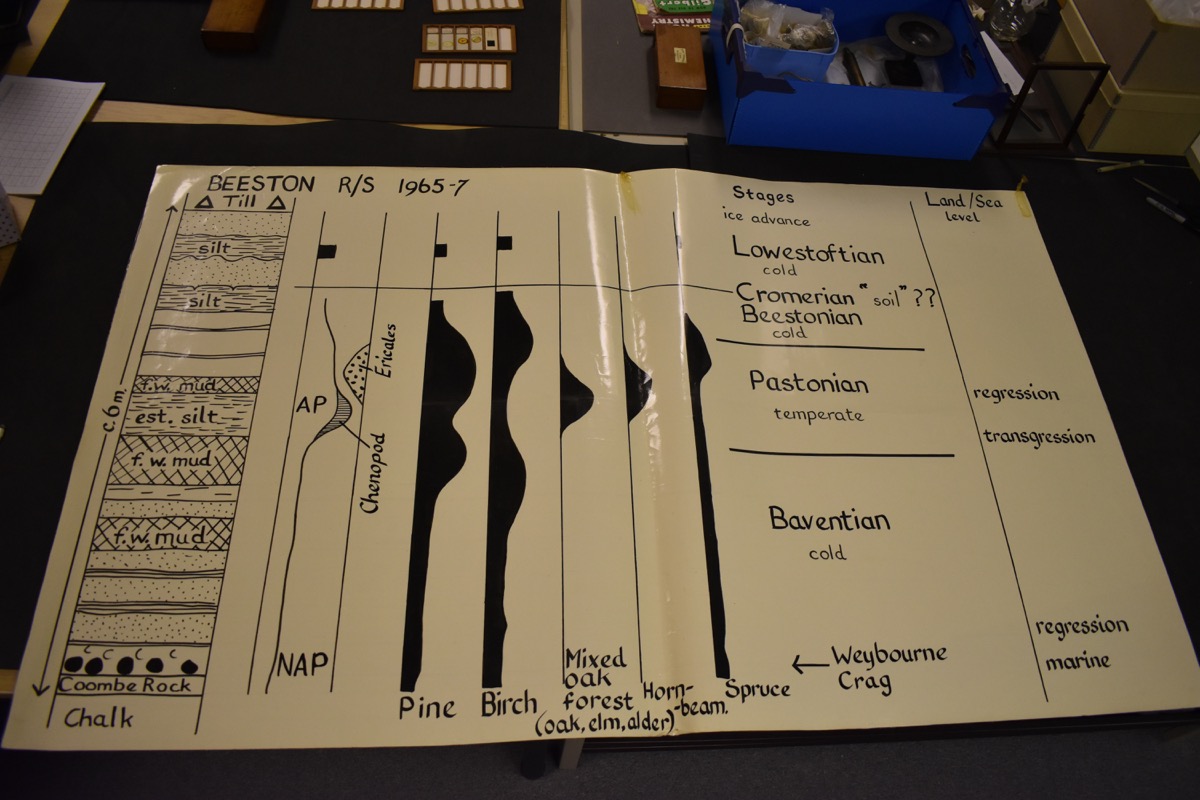 CHEMISTRY
BEESTON R/S 1965-7
Till
silt
silt
f.w. mud
est. silt
f.w. mud
f.w. mud
c c c
Coombe Rock
Chalk
c.6m.
AP
NAP
Ericales
Chenopod
Pine
Birch
Mixed
oak
forest
(oak, elm, alder)
Horn-
-beam.
Spruce
Stages
ice advance
Lowestoftian
cold
Cromerian "soil" ??
Beestonian
cold
Pastonian
temperate
Baventian
cold
Weybourne
Crag
Land/Sea
level
regression
transgression
regression
marine